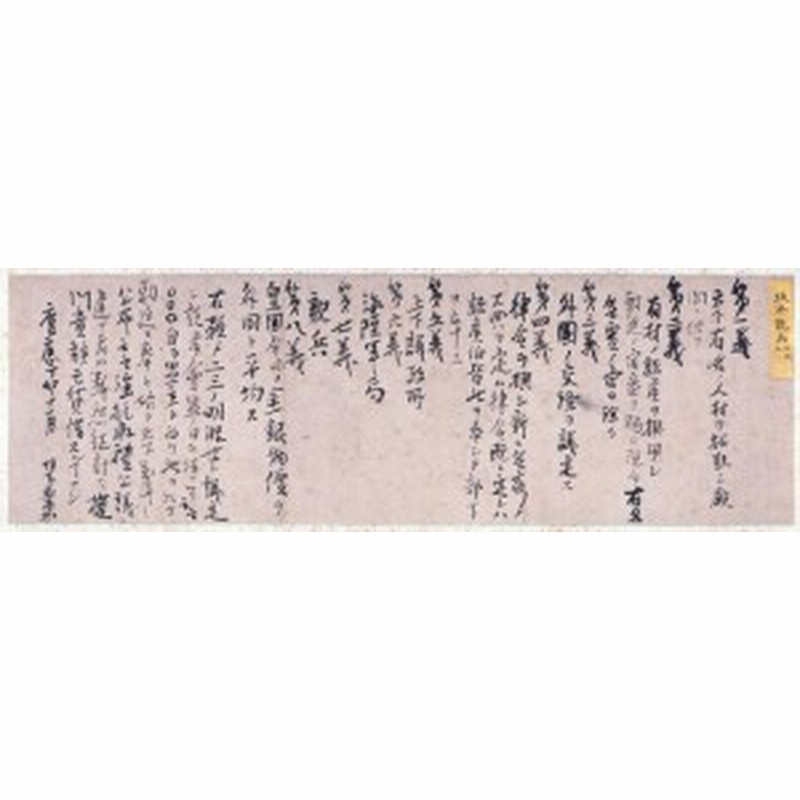 第一義
天下有名ノ人材ヲ招致シ顧
問ニ供フ
第二義
有材ノ諸侯ヲ撰用シ
朝廷ノ官爵ヲ賜ヒ現今有名
無実ノ官ヲ除ク
第三義
外国ノ交際ヲ議定ス
第四義
律令ヲ撰シ新ニ無窮ノ
大典ヲ定ム律令既ニ定レハ
諸侯伯皆此ヲ奉シテ部下
ヲ率ユ
第五義
上下議政所
第六義
海陸軍局
第七義
親兵
第八義
皇国今日ノ金銀物価ヲ
外国ト平均ス
右預メ二三ノ明眼士ト議定
シ諸侯会盟ノ日ヲ待ツテ云云
○○○自ラ盟主ト為リ此ヲ以テ
朝廷ニ奉リ始テ天下萬民ニ
公布云云強抗非礼公議ニ
違フ者ハ断然征討ス権
門貴族モ貸借スルコトナシ
慶應丁卯十一月 坂本直柔